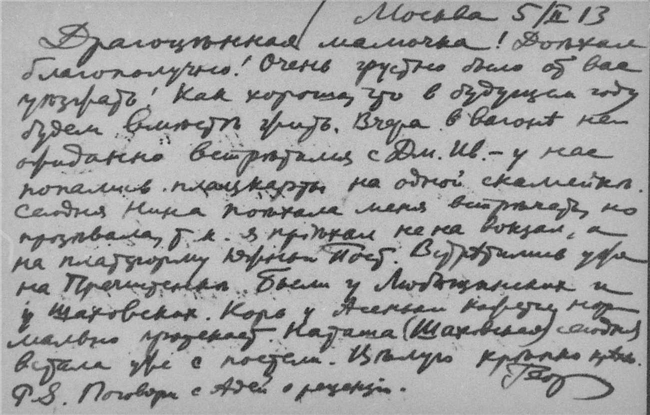 Москва 5/II 13
Драгоцѣнная мамочка! Доѣхал
благополучно! Очень грустно было от вас
уѣзжать! Как хорошо, что в будущем году
будем вмѣстѣ жить. Вчера в вагонѣ не
ожиданно встрѣтился с Дм. Ив. – у нас
попались плацкарты на одной скамейкѣ.
Сегодня Нина поѣхала меня встрѣчать, но
прозѣвала, т. к. я приѣхал не на вокзал, а
на платформу Южный Пост. Встрѣтились уже
на Пречистенкѣ. Были у Любощинских и
у Шаховских. Корь у Асеньки нор
мально протекает. Наташа (Шаховская) сегодня
встала уже с постели. Цѣлую крѣпко
P.S. Поговори с Адей о рецензіи. Геор